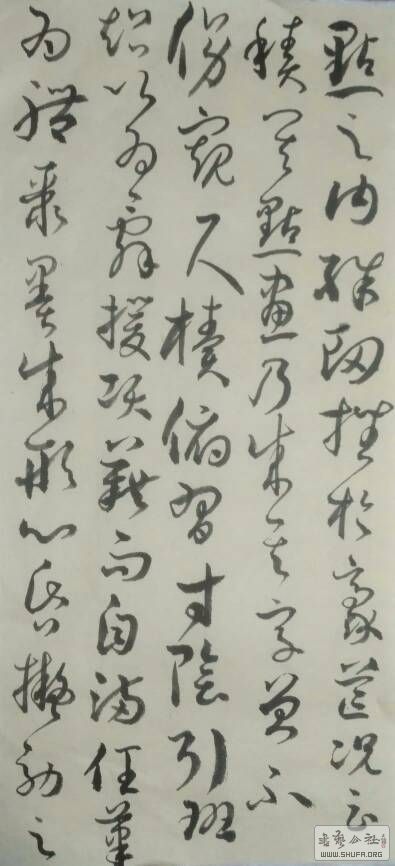 點之內殊衄挫於豪芒況云
積其點畫乃成其字曾不
傍窺尺櫝俯習寸陰引班
超以為辭援項籍而自滿任筆
為體聚墨成形心昏擬效之
WWW.SHUFA.ORG